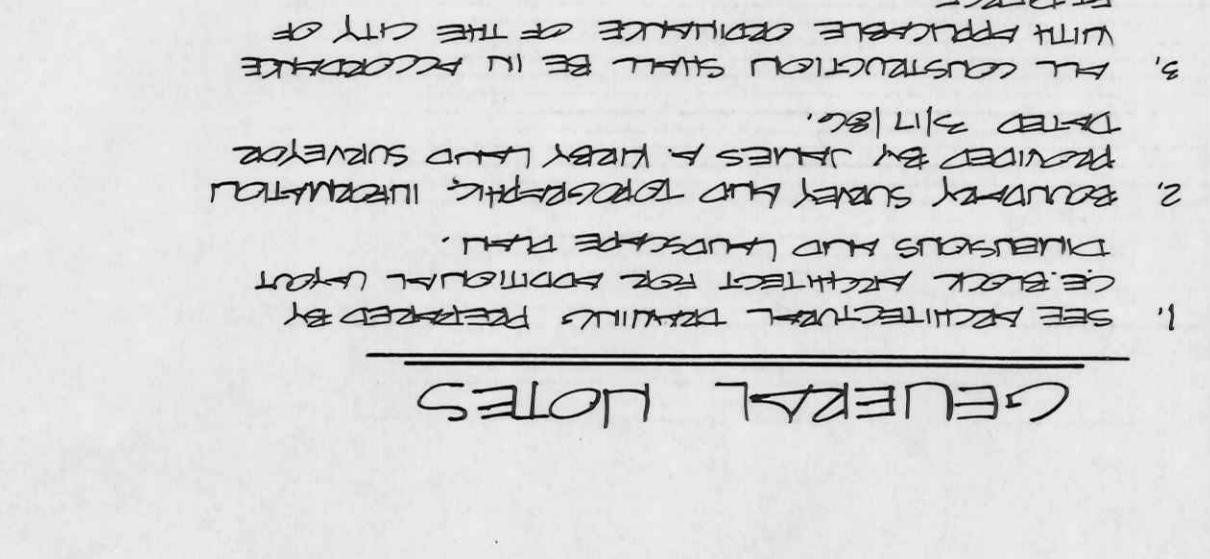 GENERAL NOTES
1. SEE ARCHITECTURAL DRAWING PREPARED BY
C.E. BLOCK ARCHITECT FOR ADDITIONAL LAYOUT
DIMENSIONS AND LANDSCAPE PLAN.
2. BOUNDARY SURVEY AND TOPOGRAPHIC INFORMATION
PROVIDED BY JAMES A. KIRBY LAND SURVEYOR
DATED 3/17/86.
3. ALL CONSTRUCTION SHALL BE IN ACCORDANCE
WITH APPLICABLE ORDINANCE OF THE CITY OF